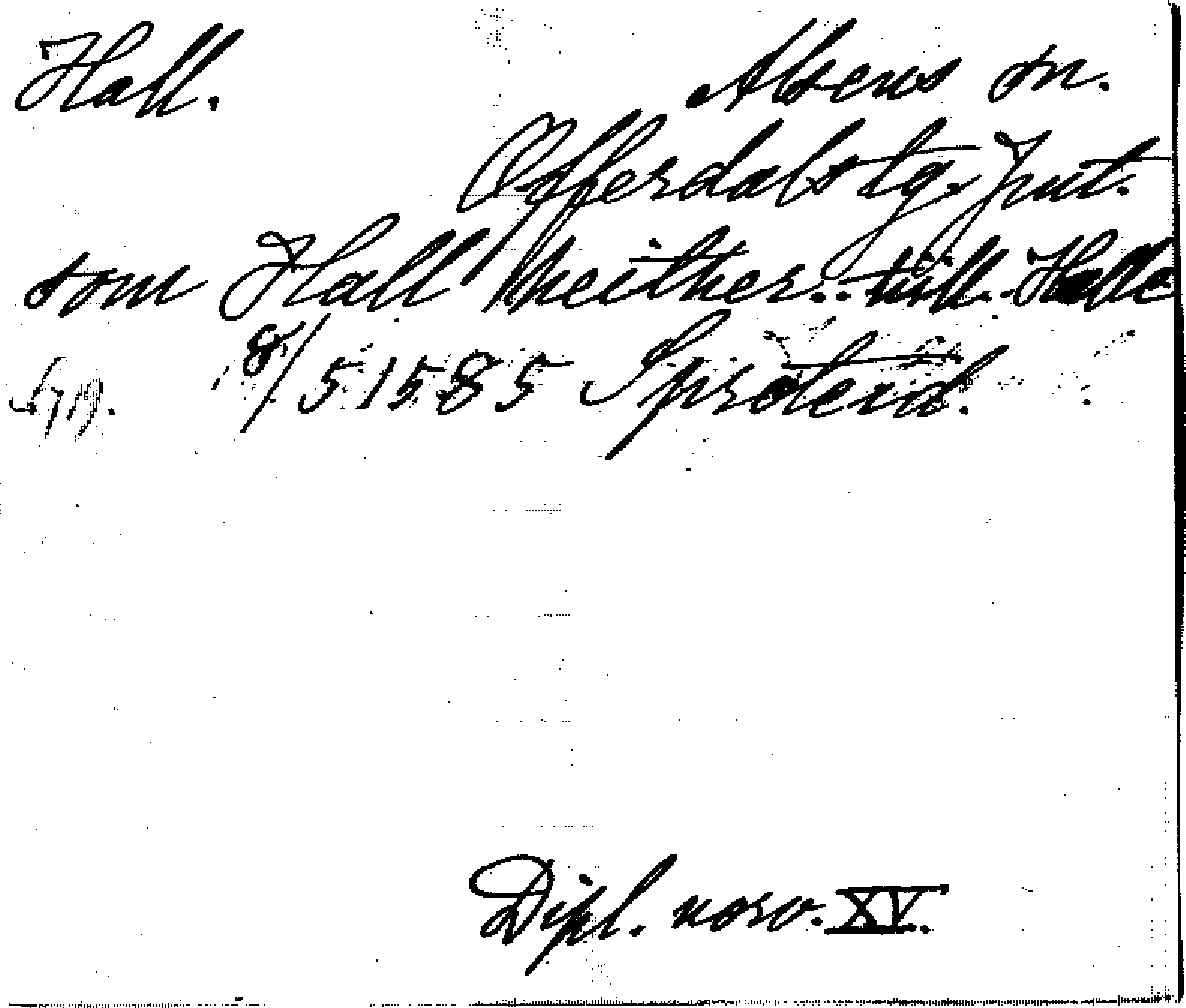 Hall.
Alsens sn.
Offerdals tg. Jmt.
som Hall heither.. till Halle
8/5 1585 Sproteid.
Dipl. norv. XV.